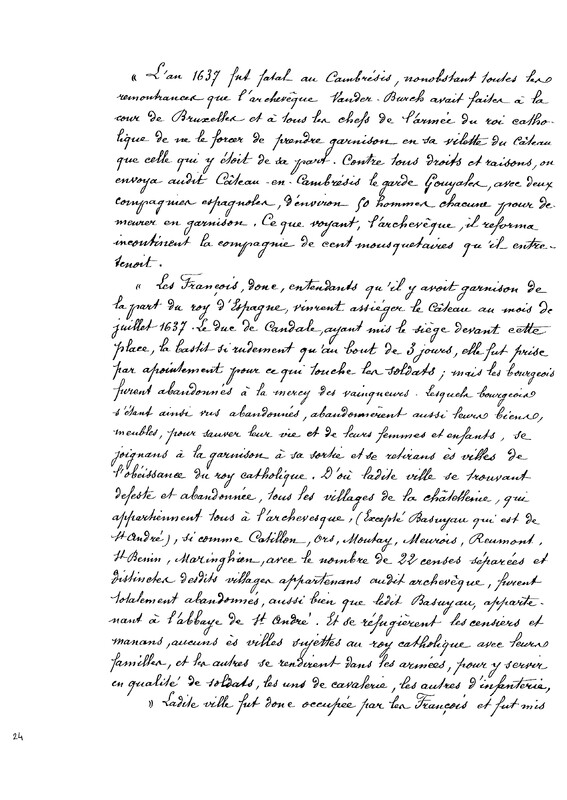 « L'an 1637 fut fatal au Cambrésis, nonobstant toutes les
remontrances que l'archevêque Vander-Burch avait faites à la
cour de Bruxelles et à tous les chefs de l'armée du roi catho-
lique de ne le forcer de prendre garnison en sa vilette du Câteau
que celle qui y étoit de sa part. Contre tous droits et raisons, on
envoya audit Câteau-en-Cambrésis le garde Gonzales, avec deux
compagnies espagnoles, d'environ 50 hommes chacune pour de-
meurer en garnison. Ce que voyant, l'archevêque, il reforma
incontinent la compagnie de cent mousquetaires qu'il entre-
tenoit.
« Les François, donc, entendants qu'il y avoit garnison de
la part du roy d'Espagne, vinrent assiéger le Câteau au mois de
juillet 1637. Le duc de Candale, ayant mis le siège devant cette
place, la bastit si rudement qu'au bout de 3 jours, elle fut prise
par apointement pour ce qui touche les soldats ; mais les bourgeois
furent abandonnés à la mercy des vainqueurs. Lesquels bourgeois
s'étant ainsi vus abandonnés, abandonnèrent aussi leurs biens,
meubles, pour sauver leur vie et de leurs femmes et enfants, se
joignans à la garnison à sa sortie et se retirans ès villes de
l'obéissance du roy catholique. D'où ladite ville se trouvant
deserte et abandonnée, tous les villages de la châtellenie, qui
appartiennent tous à l'archevesque, (Excepté Basuyau qui est de
St André), si comme Catillon, Ors, Montay, Meurois, Reumont,
St Benin, Maringhien, avec le nombre de 22 censes séparées et
distinctes desdits villages appartenans audit archevêque, furent
totalement abandonnés, aussi bien que ledit Basuyau, apparte-
nant à l'abbaye de St André. Et se réfugièrent les censiers et
manans, aucuns ès villes sujettes au roy catholique avec leurs
familles, et les autres se rendirent dans les armées, pour y servir
en qualité de soldats, les uns de cavalerie, les autres d'infanterie,
» Ladite ville fut donc occupée par les François et fut mis
24